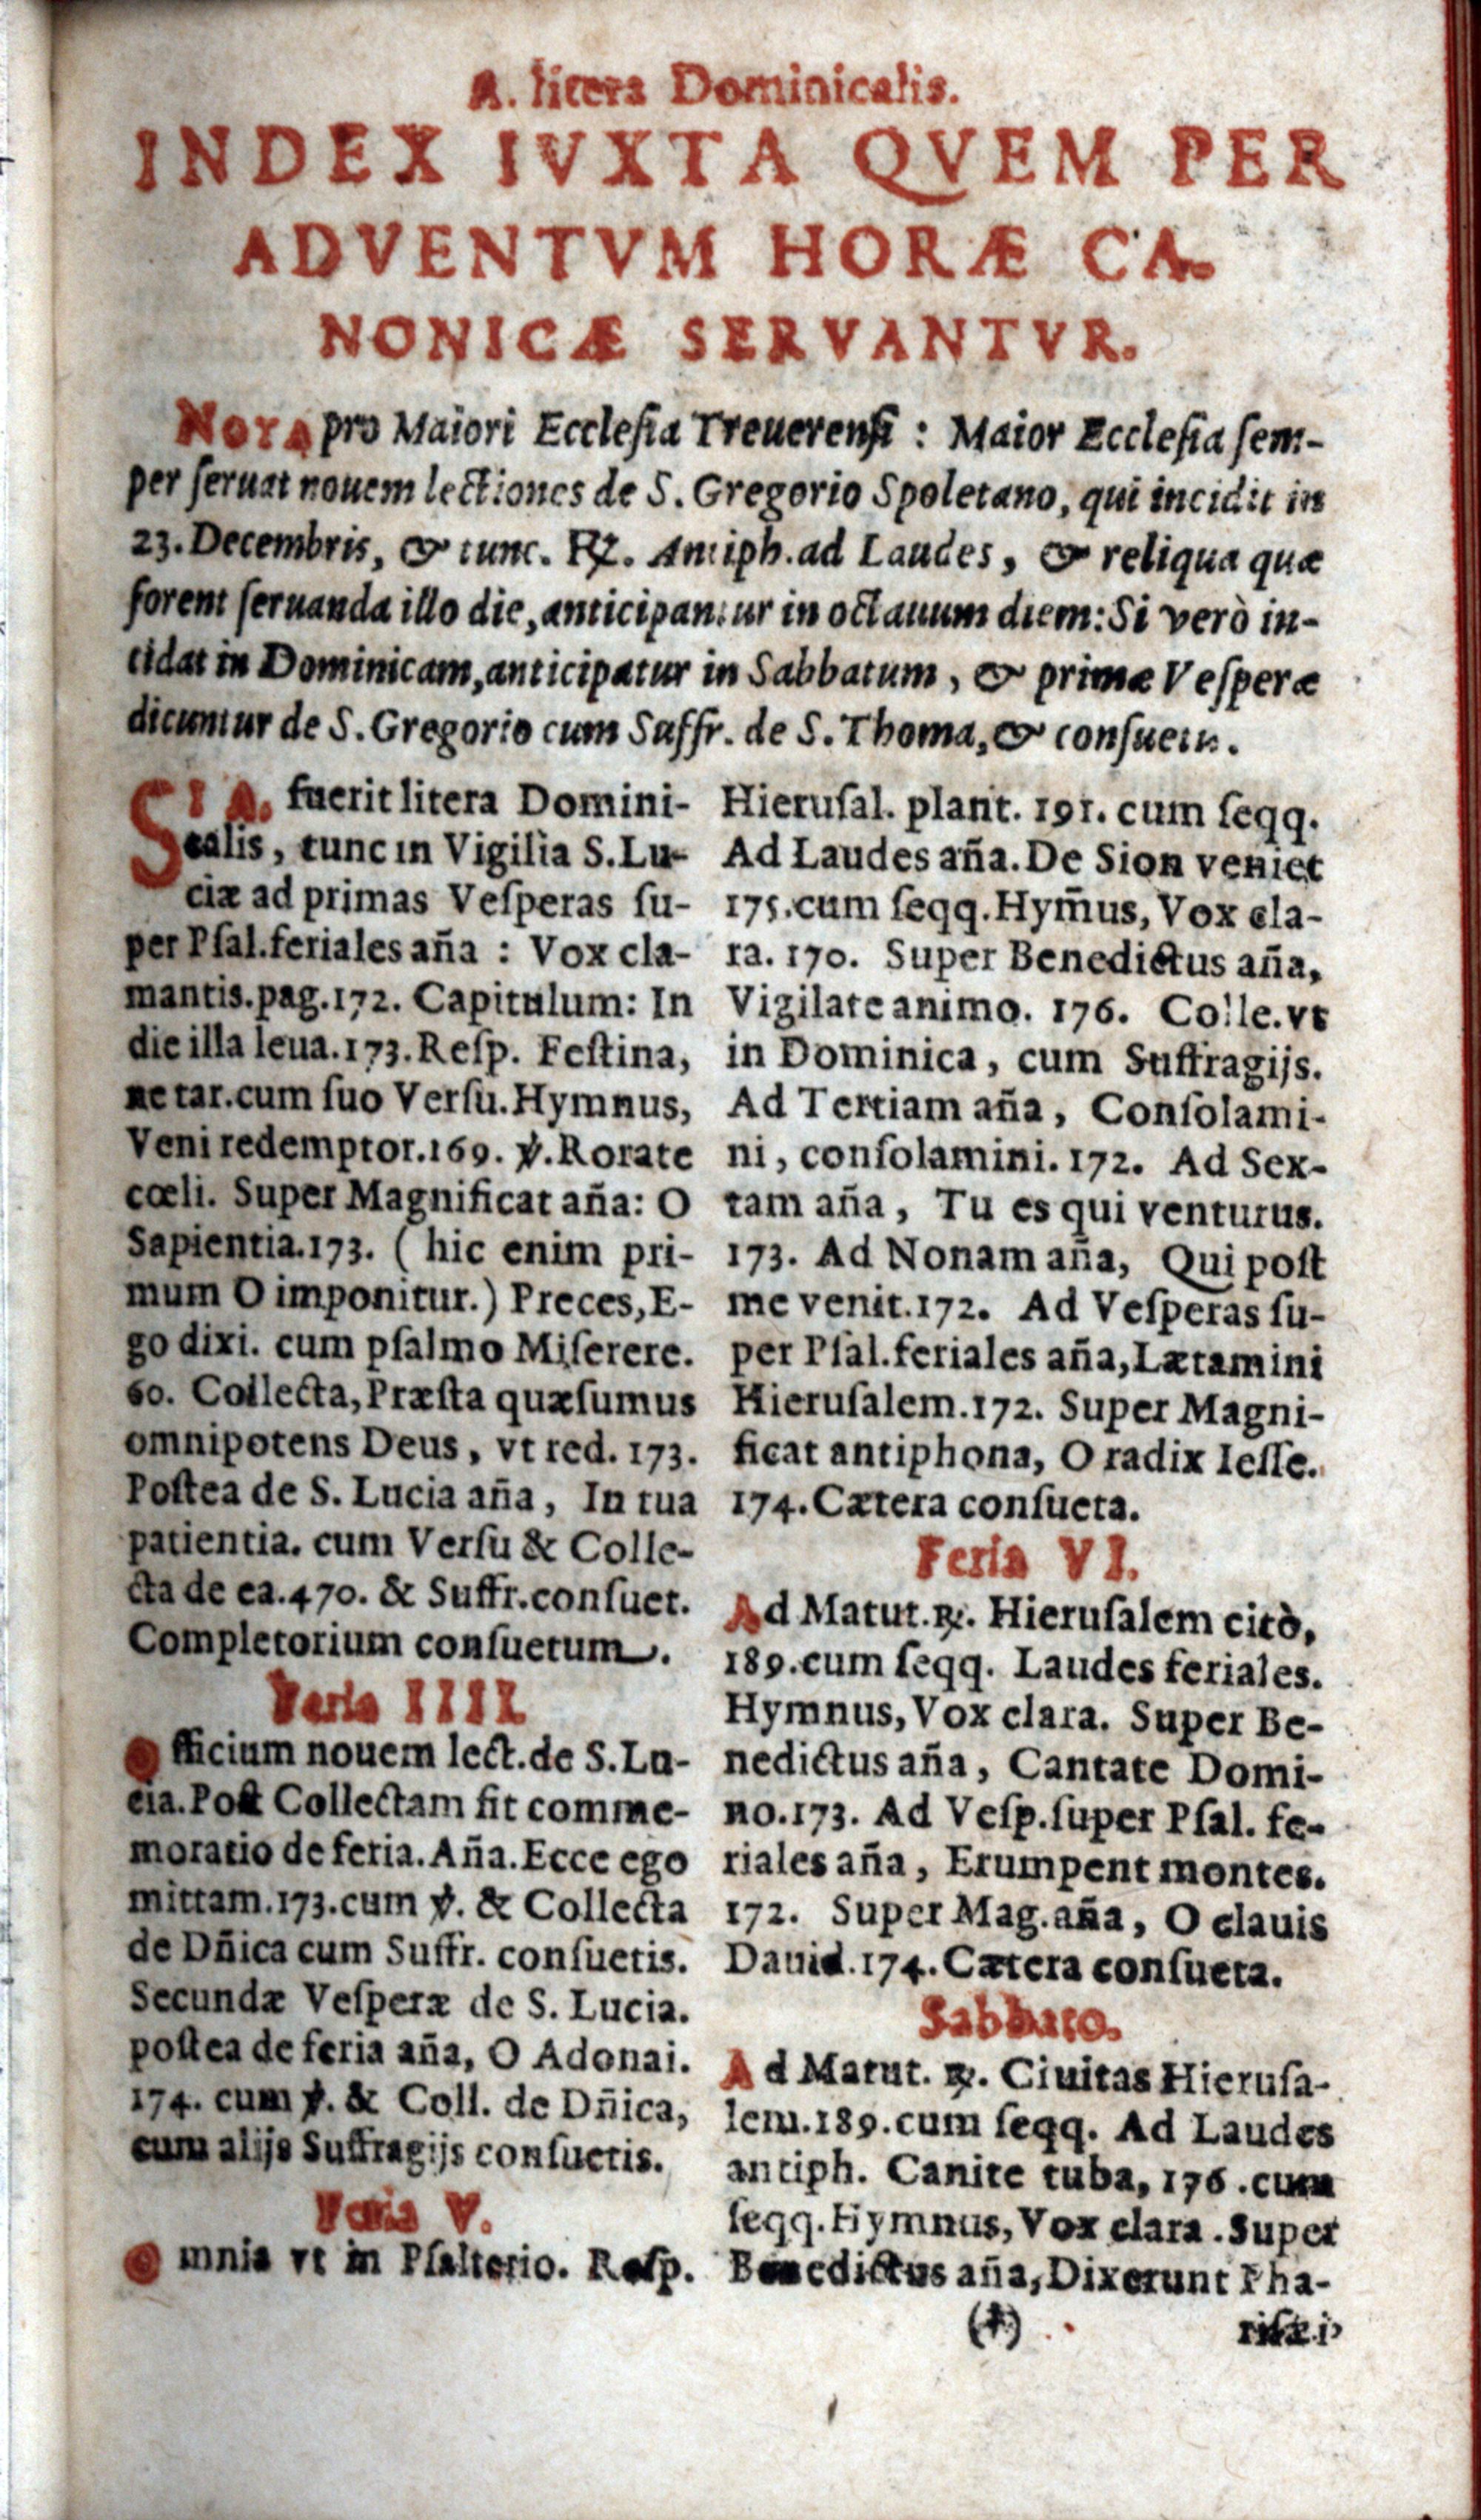 A. litera Dominicalis.
INDEX IVXTA QVEM PER
ADVENTVM HORÆ CA-
NONICÆ SERVANTVR.
NOTA pro Maiori Ecclesia Treuerensi : Maior Ecclesia sem-
per seruat nouem lectiones de S. Gregorio Spoletano, qui incidit in
23. Decembris, & tunc. ℟. Antiph. ad Laudes, & reliqua quæ
forent seruanda illo die, anticipantur in octauum diem: Si verò in-
cidat in Dominicam, anticipatur in Sabbatum, & primæ Vesperæ
dicuntur de S. Gregorio cum Suffr. de S. Thoma, & consuetis.
SI A. fuerit litera Domini-
calis, tunc in Vigilia S. Lu-
ciæ ad primas Vesperas su-
per Psal. feriales aña : Vox cla-
mantis. pag. 172. Capitulum: In
die illa leua. 173. Resp. Festina,
ne tar. cum suo Versu. Hymnus,
Veni redemptor. 169. ℣. Rorate
cœli. Super Magnificat aña: O
Sapientia. 173. ( hic enim pri-
mum O imponitur.) Preces, E-
go dixi. cum psalmo Miserere.
60. Collecta, Præsta quæsumus
omnipotens Deus, vt red. 173.
Postea de S. Lucia aña, In tua
patientia. cum Versu & Colle-
cta de ea. 470. & Suffr. consuet.
Completorium consuetum.
Feria IIII.
Officium nouem lect. de S. Lu-
cia. Post Collectam fit comme-
moratio de feria. Aña. Ecce ego
mittam. 173. cum ℣. & Collecta
de Dñica cum Suffr. consuetis.
Secundæ Vesperæ de S. Lucia.
postea de feria aña, O Adonai.
174. cum ℣. & Coll. de Dñica,
cum alijs Suffragijs consuetis.
Feria V.
Omnia vt in Psalterio. Resp.
Hierusal. plant. 191. cum seqq.
Ad Laudes aña. De Sion veniet
175. cum seqq. Hym̃us, Vox cla-
ra. 170. Super Benedictus aña,
Vigilate animo. 176. Colle. vt
in Dominica, cum Suffragijs.
Ad Tertiam aña, Consolami-
ni, consolamini. 172. Ad Sex-
tam aña, Tu es qui venturus.
173. Ad Nonam aña, Qui post
me venit. 172. Ad Vesperas su-
per Psal. feriales aña, Lætamini
Hierusalem. 172. Super Magni-
ficat antiphona, O radix Iesse.
174. Cætera consueta.
Feria VI.
Ad Matut. ℟. Hierusalem citò,
189. cum seqq. Laudes feriales.
Hymnus, Vox clara. Super Be-
nedictus aña, Cantate Domi-
no. 173. Ad Vesp. super Psal. fe-
riales aña, Erumpent montes.
172. Super Mag. aña, O clauis
Dauid. 174. Cætera consueta.
Sabbato.
Ad Matut. ℟. Ciuitas Hierusa-
lem. 189. cum seqq. Ad Laudes
antiph. Canite tuba, 176. cum
seqq. Hymnus, Vox clara. Super
Benedictus aña, Dixerunt Pha-
risæi